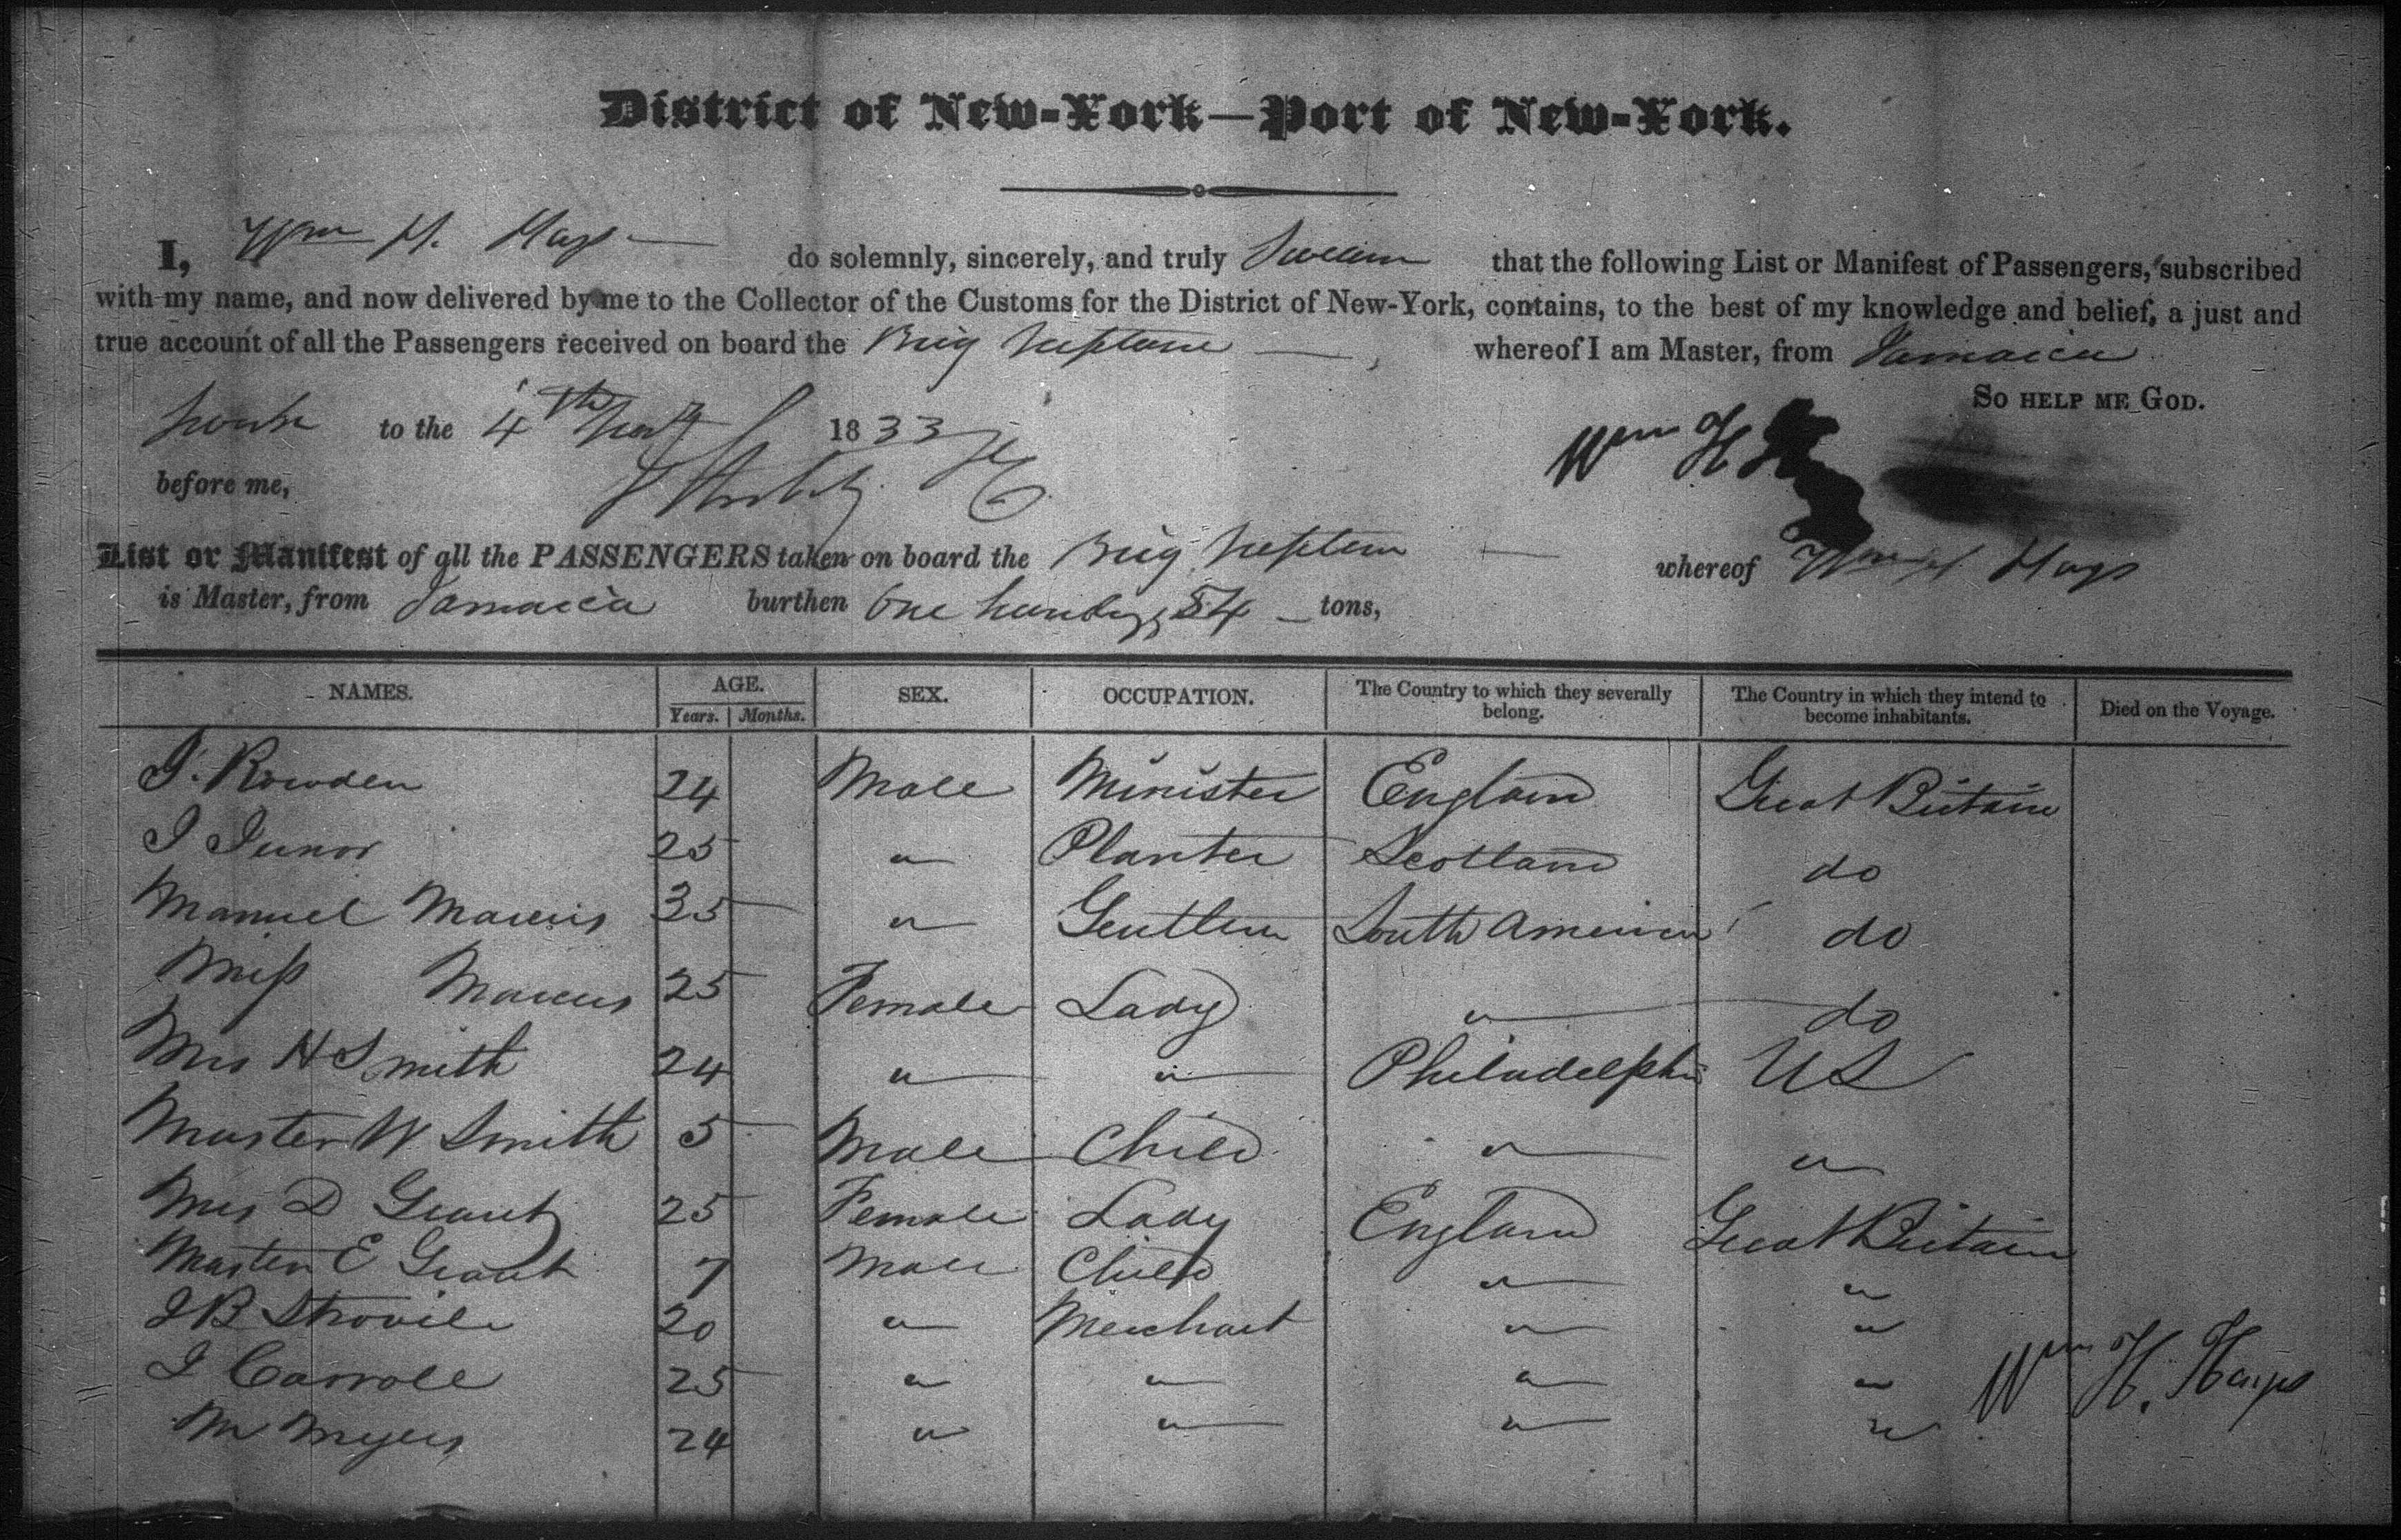 District of New-York—Port of New-York.
I, Wm H. Hays do solemnly, sincerely, and truly Swear that the following List or Manifest of Passengers, subscribed
with my name, and now delivered by me to the Collector of the Customs for the District of New-York, contains, to the best of my knowledge and belief, a just and
true account of all the Passengers received on board the Brig Neptune whereof I am Master, from Jamaica
So help me God.
to the 4th 1833
Wm H
before me,
List or Manifest of all the PASSENGERS taken on board the Brig Neptune whereof Wm H. Hays
is Master, from Jamaica burthen One hundd & 54 tons,
NAMES. AGE. SEX. OCCUPATION. The Country to which they severally belong. The Country in which they intend to become inhabitants. Died on the Voyage.
Years. Months.
J. Rowden 24 Male Minister England Great Britain
J Junor 25 " Planter Scotland do
Manuel Marcus 35 " Gentlem South America do
Miss Marcus 25 Female Lady " do
Mrs H Smith 24 " " Philadelphia US
Master W Smith 5 Male Child " "
Mrs D Grant 25 Female Lady England Great Britain
Master E Grant 7 Male Child " "
J B 20 " Merchant " "
J Carroll 25 " " " "
M Myers 24 " " " "
Wm H. Hays